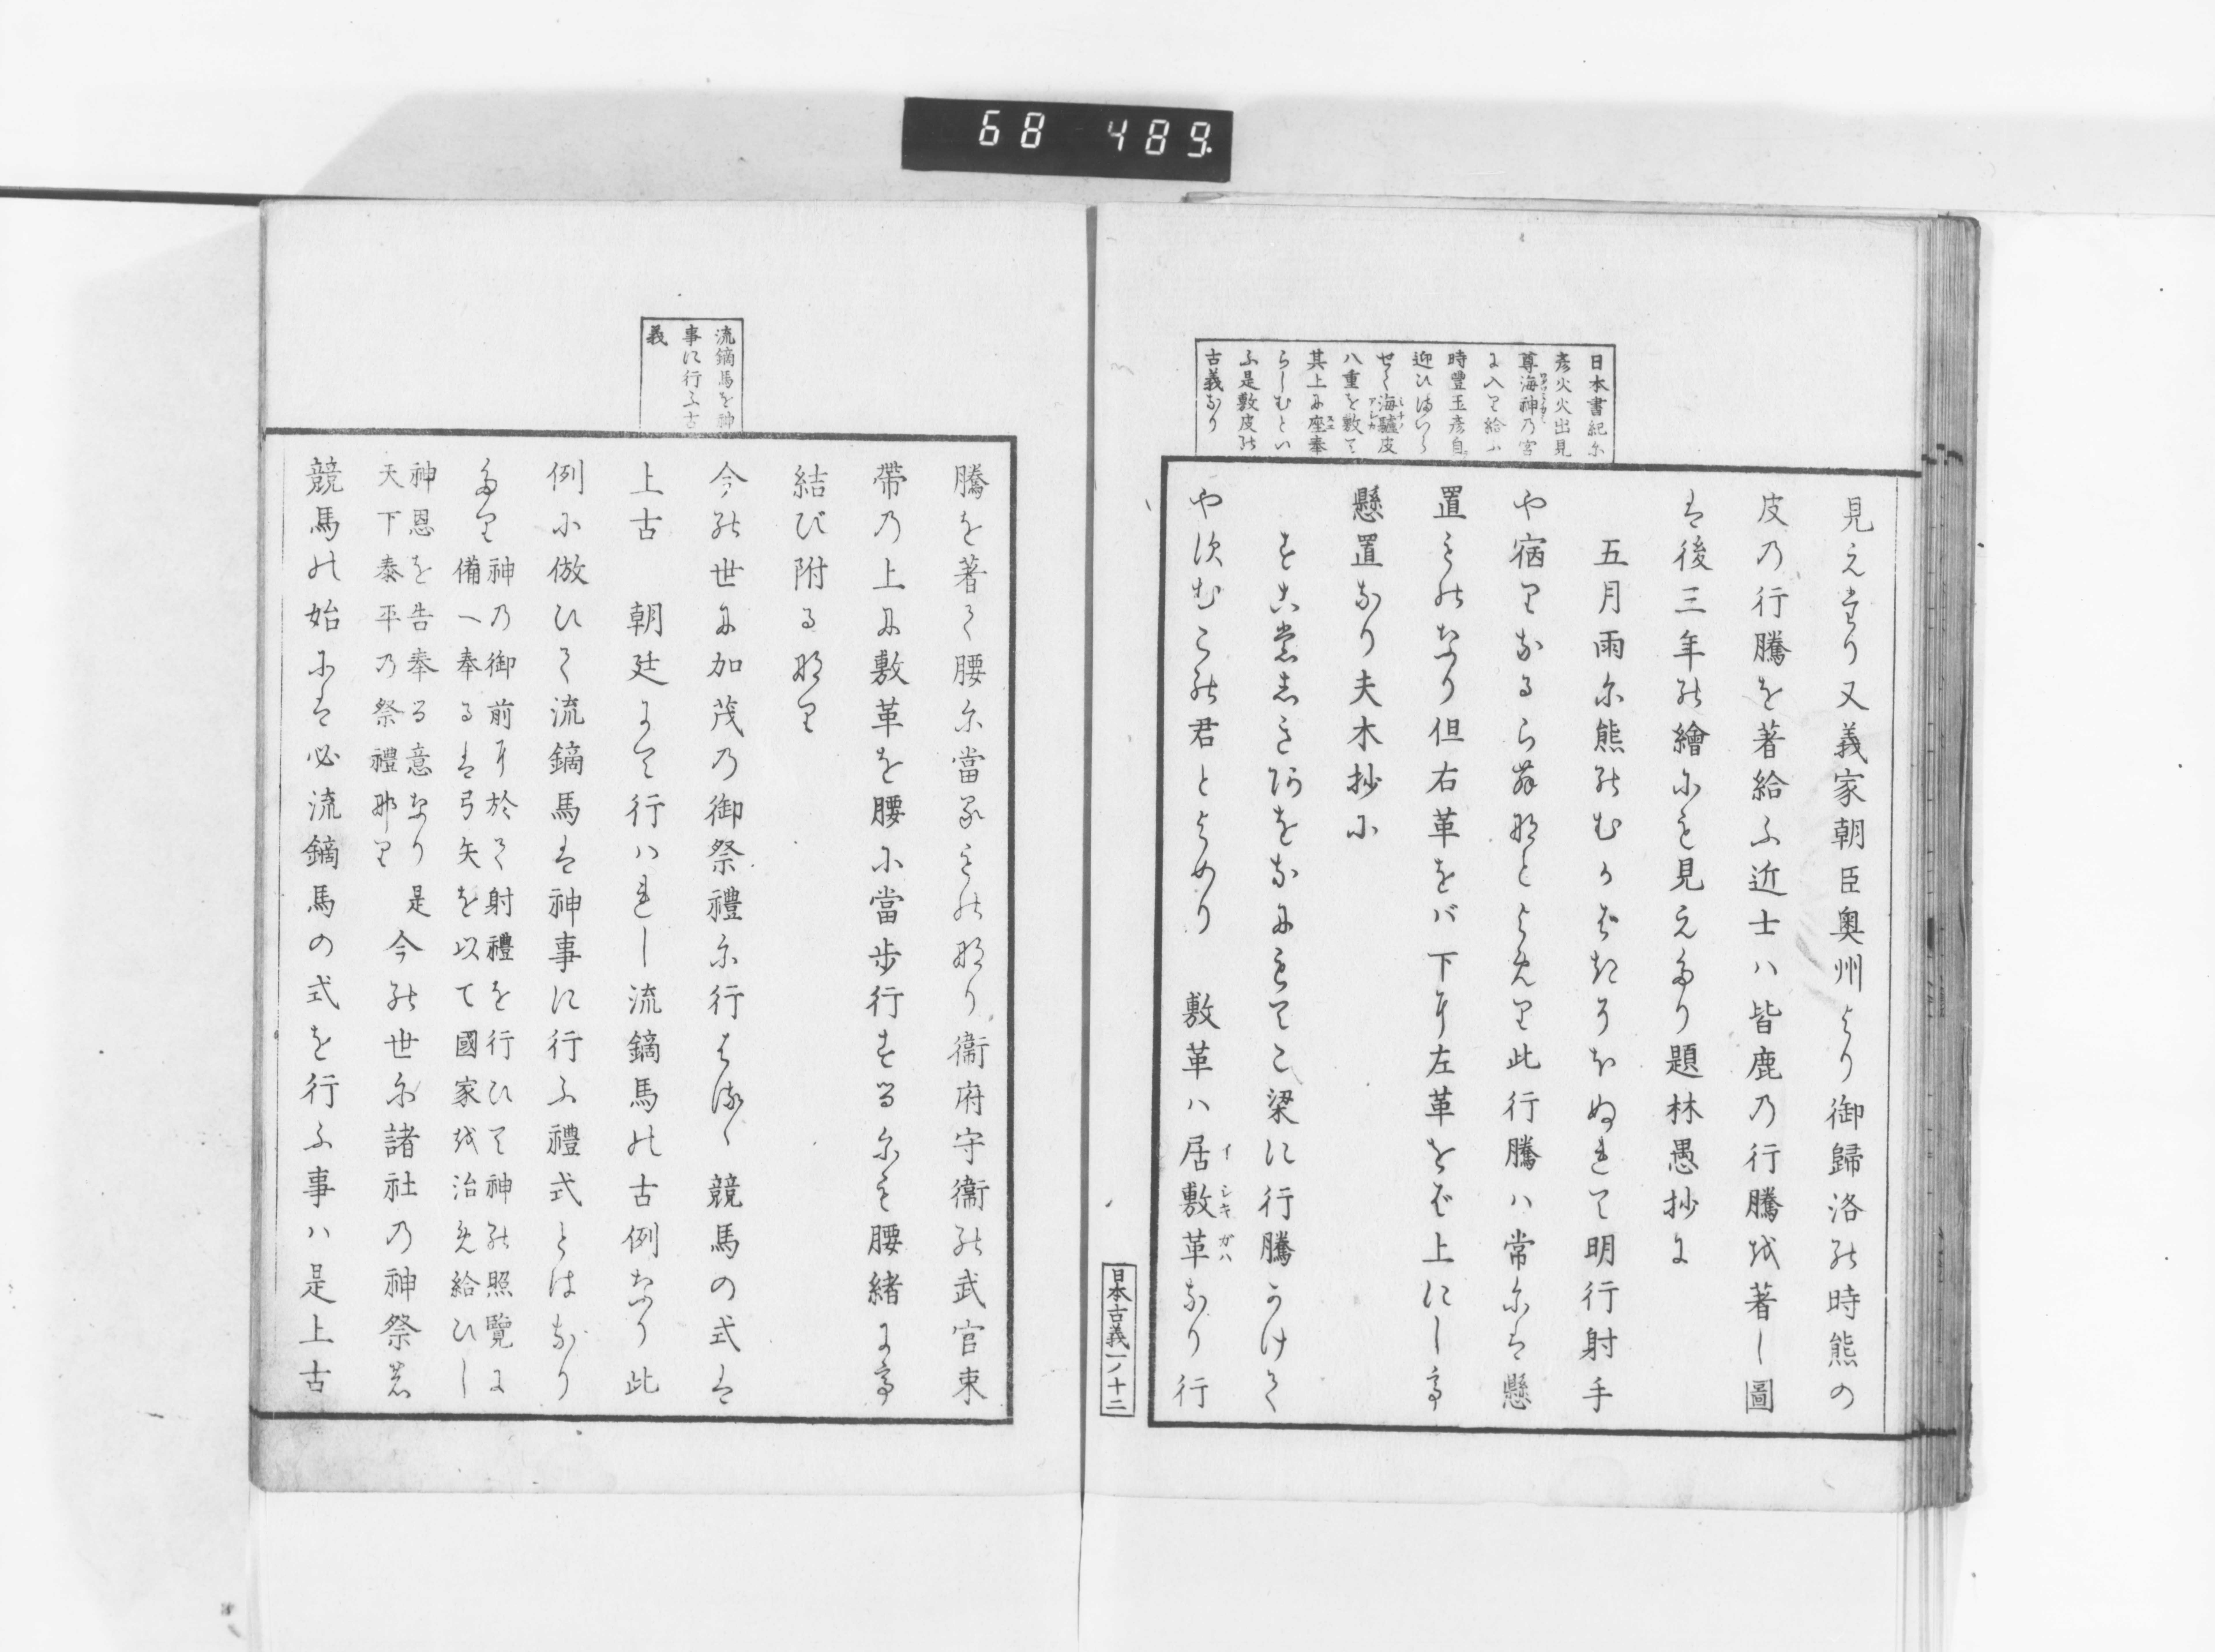 68 489
日本書紀尓
彦火火出見
尊海神乃宮
に入り給ふ
時豐玉彦自
迎ひまつら
せて海驢皮
八重を敷て
其上に座奉
らしむとい
ふ是敷皮の
古義なり
見えたり又義家朝臣奥州より御歸洛の時熊の
皮乃行騰を著給ふ近士ハ皆鹿乃行騰を著し圖
は後三年の繪にも見えたり題林愚抄に
五月雨に熊のむかばきそほぬれて明行射手
や宿りなるら
と よめり此行騰ハ常には懸
置ものなり但右革をバ下に左革をば上にし
懸置なり夫木抄に
を
なにもてこ梁に行騰かけて
や
むこの君とよめり 敷革ハ居敷革なり行
イシキガハ
日本古義一ノ十二
流鏑馬を神
事に行ふ古
義
騰を著て腰に當るものなり衞府守衞の武官束
帶乃上に敷革を腰に當歩行するにも腰緒に
結び附るなり
今の世に加茂乃御祭禮に行はるゝ競馬の式は
上古 朝廷にて行ハれし流鏑馬の古例なり此
例に倣ひて流鏑馬は神事に行ふ禮式とはなり
たり
神乃御前に於て射禮を行ひて神の照覽に
備へ奉るは弓矢を以て國家を治め給ひし
神恩を告奉る意なり 是
天下泰平乃祭禮なり
今の世に諸社乃神祭
競馬の始には必流鏑馬の式を行ふ事ハ是上古